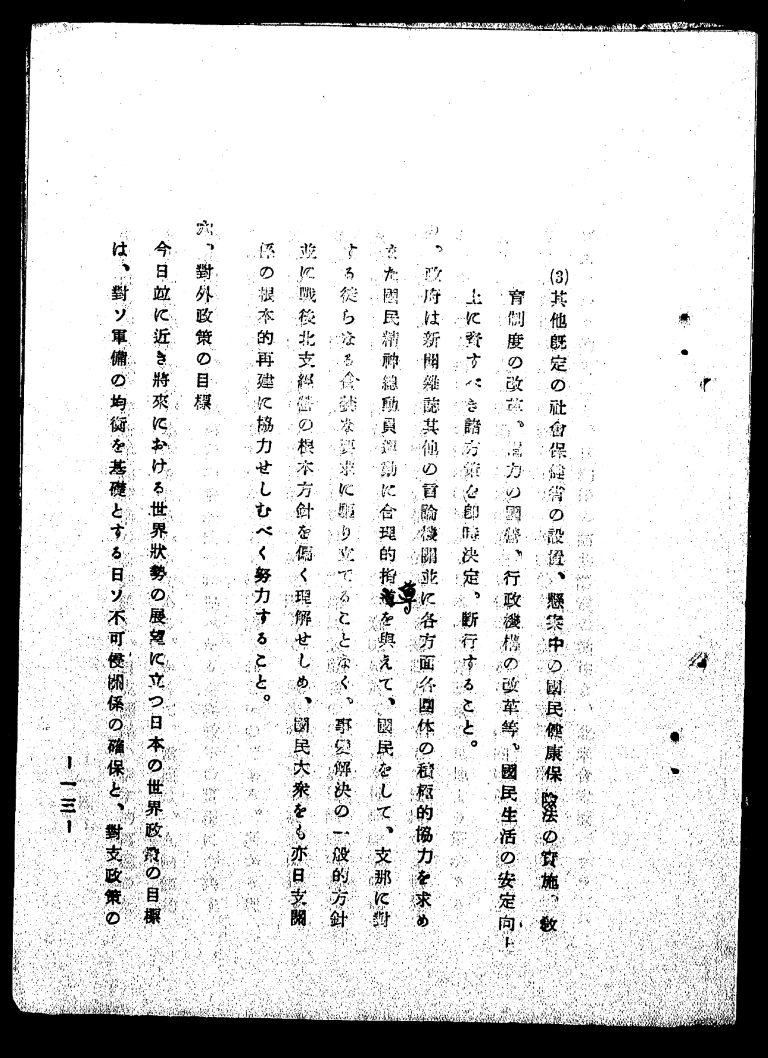 (3)其他既定の社會保健省の設置、懸案中の國民健康保險法の實施、敎
育制度の改革、電力の國營、行政機構の改革等、國民生活の安定向上
上に資すべき諸方策を卽時決定、斷行すること。
、政府は新聞雜誌其他の言論機關並に各方面各團体の積極的協力を求め
また國民精神總動員運動に合理的指導を與えて、國民をして、支那に對
する徒らなる貪婪な要求に驅り立てることなく、事變解決の一般的方針
並に戰後北支經營の根本方針を偏く理解せしめ、國民大衆をも亦日支關
係の根本的再建に協力せしむべく努力すること。
六、對外政策の目標
今日竝に近き將來における世界狀勢の展望に立つ日本の世界政策の目標
は、對ソ軍備の均衡を基礎とする日ソ不可侵關係の確保と、對支政策の
―一三―